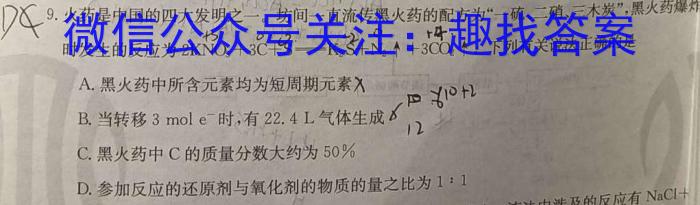 DC 9. 火药是中国的四大发明之一,坊间一直流传黑火药的配方为“一硫、二硝、三木炭”,黑火药爆炸
微信公众号关注:趣找答案
时发生的反应为2KNO₃+3C+S N₂↑+3CO₂
A. 黑火药中所含元素均为短周期元素 X
B. 当转移 3 mol e⁻时,有 22.4 L 气体生成
12
C. 黑火药中 C 的质量分数大约为 50%
D. 参加反应的还原剂与氧化剂的物质的量之比为 1∶1
涉及的反应有 NaCl+